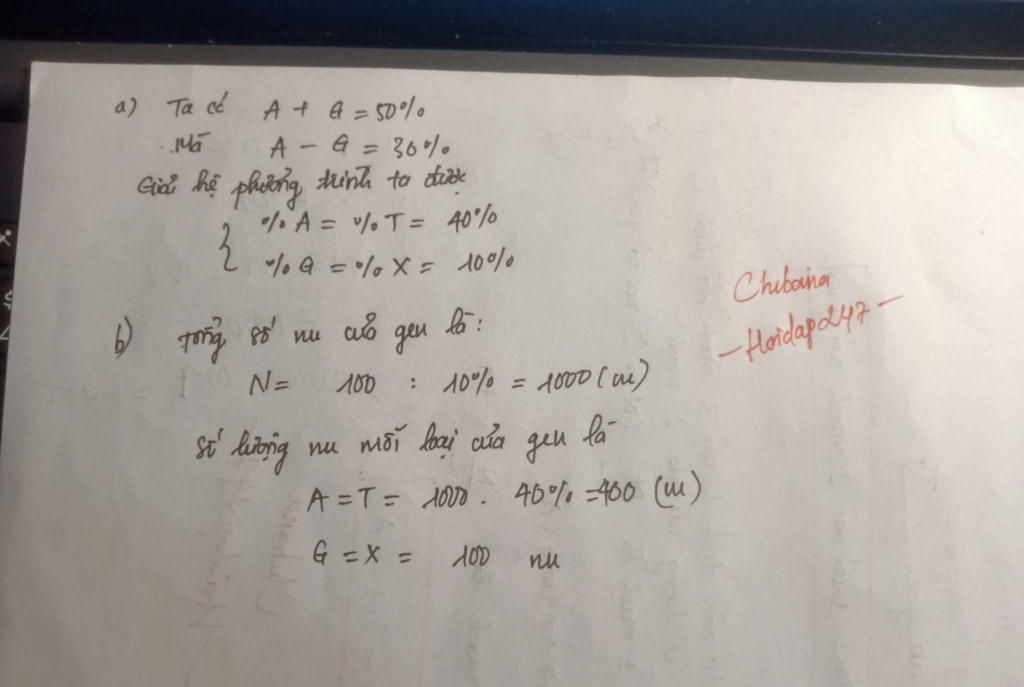 a) Ta có A + G = 50%
Mà A - G = 30%
Giải hệ phương trình ta được
% A = % T = 40%
% G = % X = 10%
b) Tổng số nu của gen là:
N = 100 : 10% = 1000 (nu)
Số lượng nu mỗi loại của gen là
A = T = 1000 . 40% = 400 (nu)
G = X = 100 nu
Chibaina
- Hoidap247 -